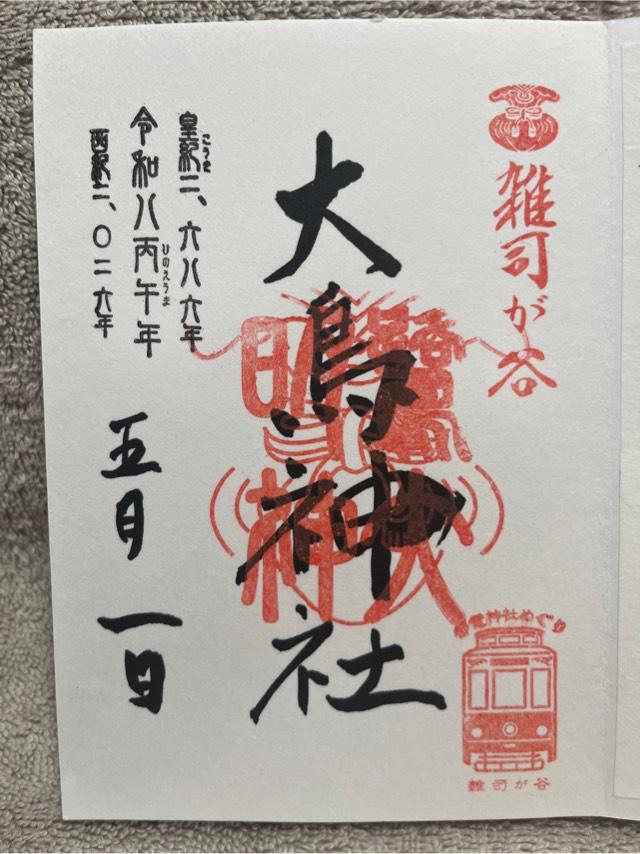 雑司が谷
大鳥神社
鷺大
明神
電神社めぐり
雑司が谷
皇紀二、六八六年
こうき
令和八丙午年
ひのえうま
西暦二、〇二六年
五月一日